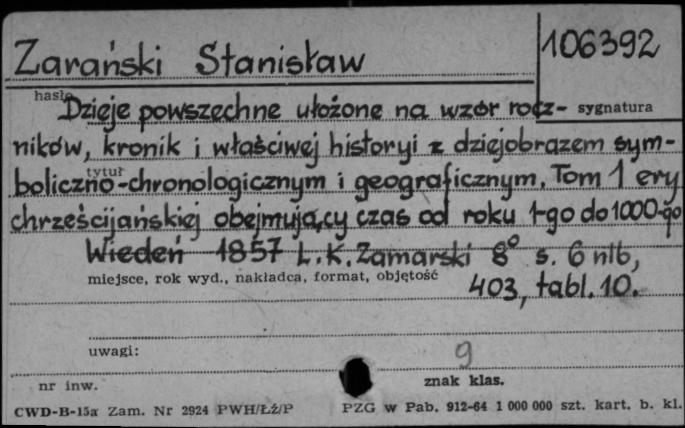 Zarański Stanisław
106392
hasło
sygnatura
Dzieje powszechne ułożone na wzór rocz-
ników, kronik i właściwej historyi z dziejobrazem sym-
tytuł
boliczno-chronologicznym i geograficznym. Tom 1 ery
chrześcijańskiej obejmujący czas od roku 1-go do 1000-go
Wiedeń 1857 L.K. Zamarski 8° s. 6 nlb,
miejsce, rok wyd., nakładca, format, objętość
403, tabl. 10.
uwagi:
9
nr inw.
znak klas.
CWD-B-15a Zam. Nr 2924 PWH/Łź/P
PZG w Pab. 912-64 1 000 000 szt. kart. b. kl.